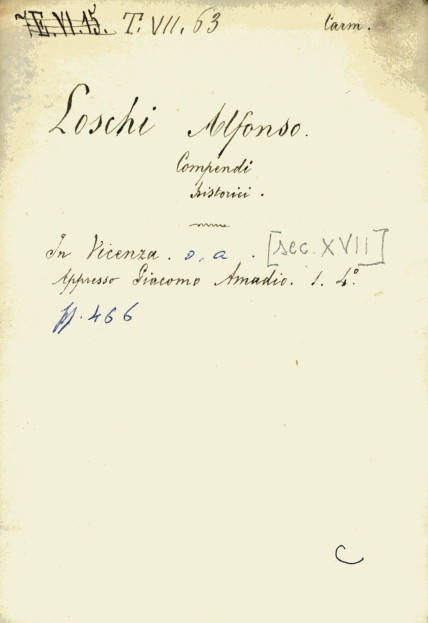 7E.VI.15. T. VII. 63 Carm.
Loschi Alfonso.
Compendi
historici.
In Vicenza. s, a. [sec. XVII]
Appresso Giacomo Amadio. 1. 4°.
pp. 466
C